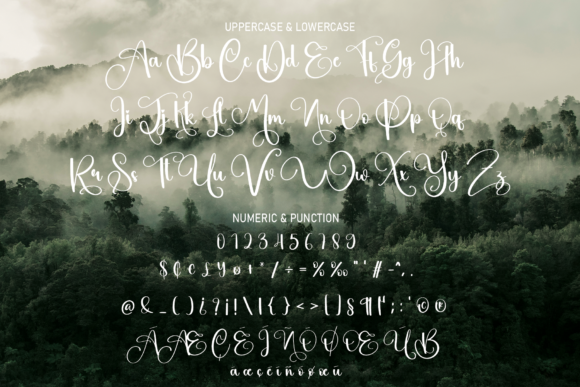 UPPERCASE & LOWERCASE
Aa Bb Cc Dd Ee Ff Gg Hh
Ii Jj Kk Ll Mm Nn Oo Pp Qq
Rr Ss Tt Uu Vv Ww Xx Yy Zz
NUMERIC & PUNCTION
0 1 2 3 4 5 6 7 8 9
$ ¢ € £ ¥ ¤ ! " / ÷ = % ‰ " ' # - ^ , .
@ & _ ( ) ¿ ? ¡ ! \ | { } < > [ ] § ¶ ! " ; : ' © ®
Á Æ Ç É Í Ñ Ó Ø Œ Ú ß
á æ ç é í ñ ó ø œ ú